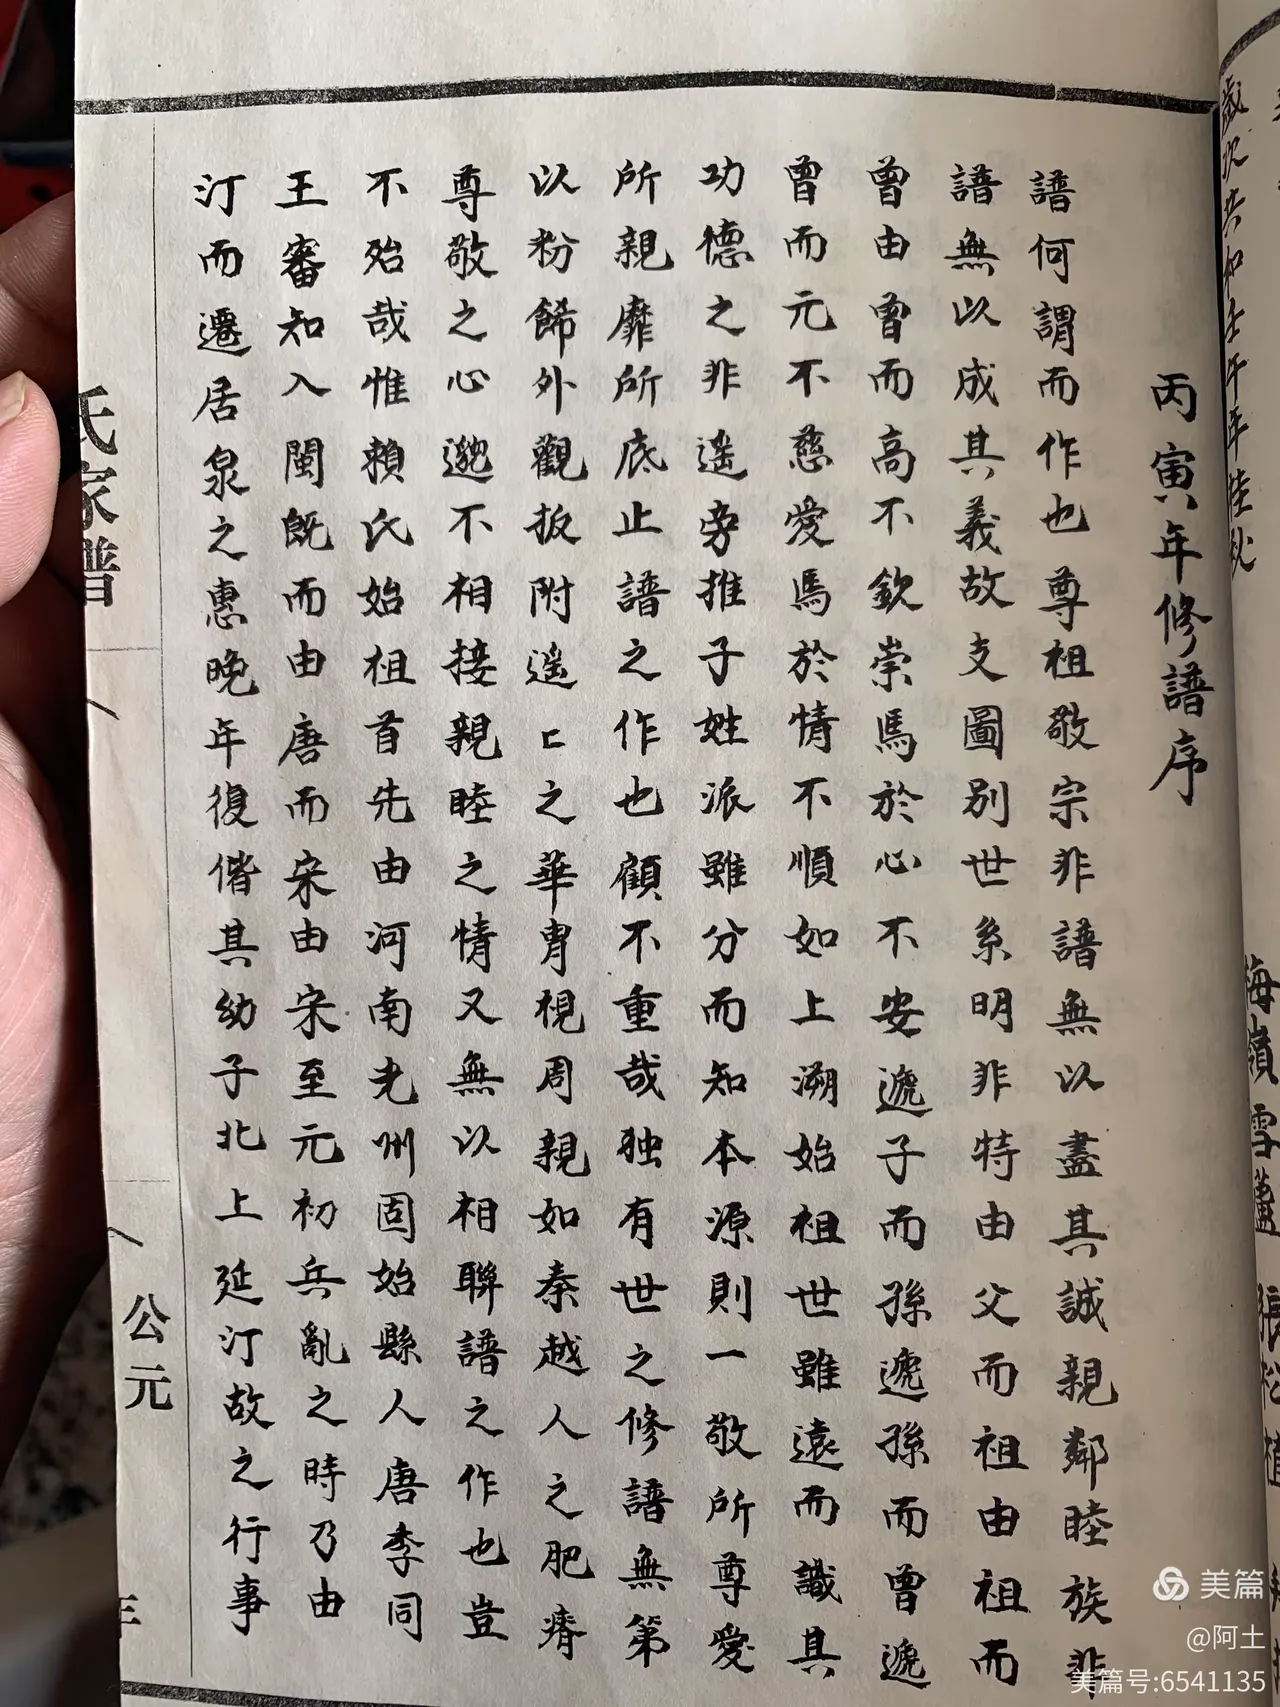 丙寅年修譜序
譜何謂而作也尊祖敬宗非譜無以盡其誠親鄰睦族非
譜無以成其義故支圖別世系明非特由父而祖由祖而
曾由曾而高不欽崇馬於心不安遞子而孫遞孫而曾遞
曾而元不慈愛馬於情不順如上溯始祖世雖遠而識其
功德之非遥旁推子姓派雖分而知本源則一敬所尊愛
所親靡所底止譜之作也顧不重哉独有世之修譜無第
以粉餙外觀扳附遥ㄷ之華胄視周親如秦越人之肥瘠
尊敬之心邈不相接親睦之情又無以相聯譜之作也豈
不殆哉惟賴氏始祖首先由河南光州固始縣人唐季同
王審知入閩既而由唐而宋由宋至元初兵亂之時乃由
汀而遷居泉之惠晚年復偕其幼子北上延汀故之行事
氏家譜
公元
年
歲次共和壬午年桂秋
梅嶺雪蘆張松植
美篇
@阿土
美篇号:6541135